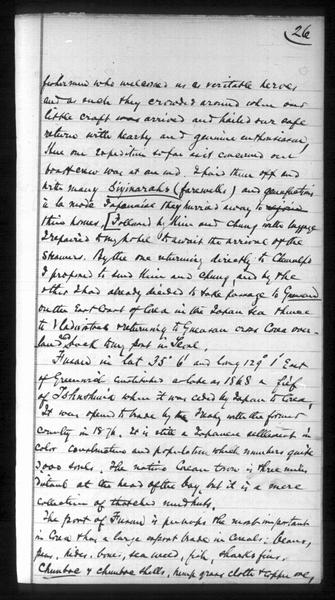 26
fishermen who welcomed us as veritable heroes
and as such they crowded around when our
little craft was arrived and hailed our safe
return with hearty and genuine enthusiasm,
Thus our expedition so far as it concerned our
boat & crew was at an end. I paid them off and
with many Siyinarahs (farewells) and genuflections
à la mode Japanaise they hurried away to rejoin
their homes. Followed by Kim and Chung with baggage
I repaired to my hotel to await the arrival of the
steamers. By the one returning directly to Chemulpo
I propose to send Kim and Chung, and by the
other I had already decided to take passage to Gensan
on the East Coast of Corea in the Japan Sea thence
to Vladivostock & returning to Gensan cross Corea over-
land back to my post in Seoul.
Fusan in lat 35° 6' and long 129° 1' East
of Greenwich constituted as late as 1868 a fief
of Tsushima when it was ceded by Japan to Corea,
It was opened to trade by the treaty with the former
country in 1876. It is still a Japanese settlement in
color construction and population which numbers quite
3,000 souls. The native Corean town is three miles
distant at the head of the bay, but it is a mere
collection of thatched mud huts.
The port of Fusan is perhaps the most important
in Corea & has a large export trade in cereals, beans,
peas, hides, bones, sea weed, fish, sharks fins,
& shells, hemp grass cloth & copper ore,